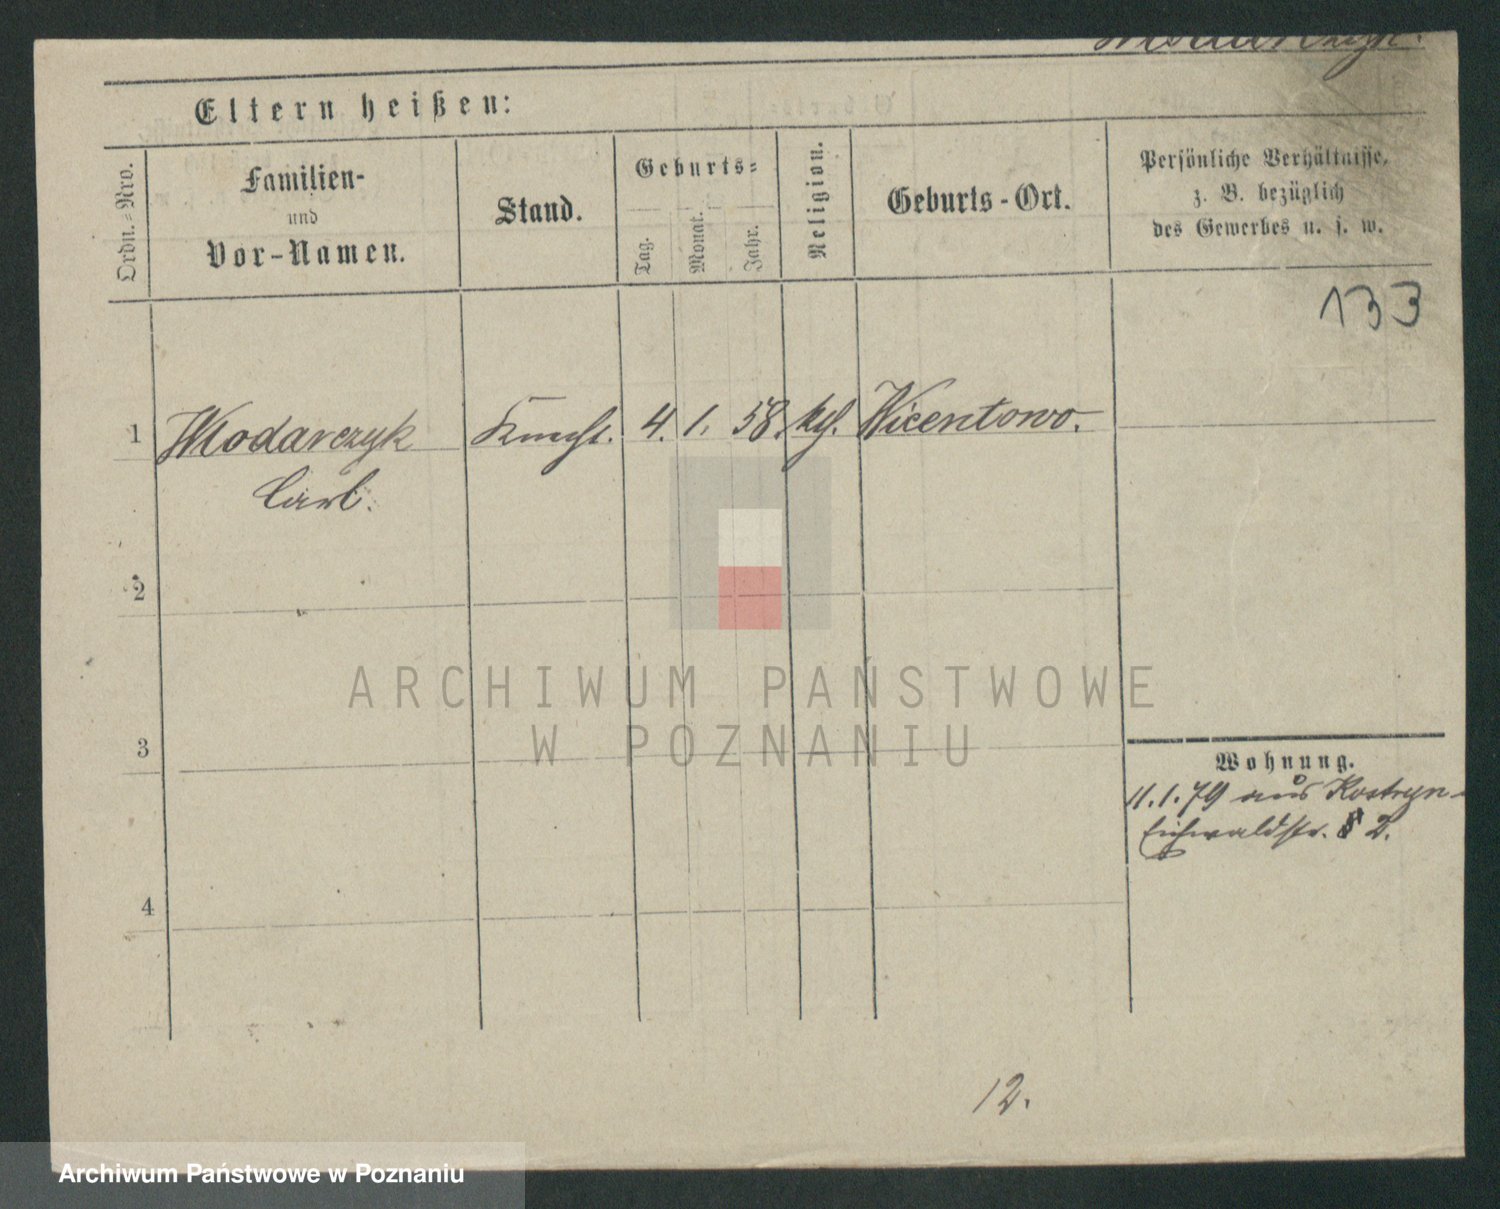 Wlodarczyk.
Eltern heißen:
Ordn.=Nro.
Familien-
und
Vor-Namen.
Stand.
Geburts=
Tag.
Monat.
Jahr.
Religion.
Geburts-Ort.
Persönliche Verhältnisse,
z. B. bezüglich
des Gewerbes u. s. w.
133
1 Wlodarczyk Knecht. 4. 1. 58. kth. Wicentowo.
Carl.
2
3
4
Wohnung.
11.1.79 aus Kostrzyn
Eichwaldstr. 2.
12.
ARCHIWUM PAŃSTWOWE
W POZNANIU
Archiwum Państwowe w Poznaniu